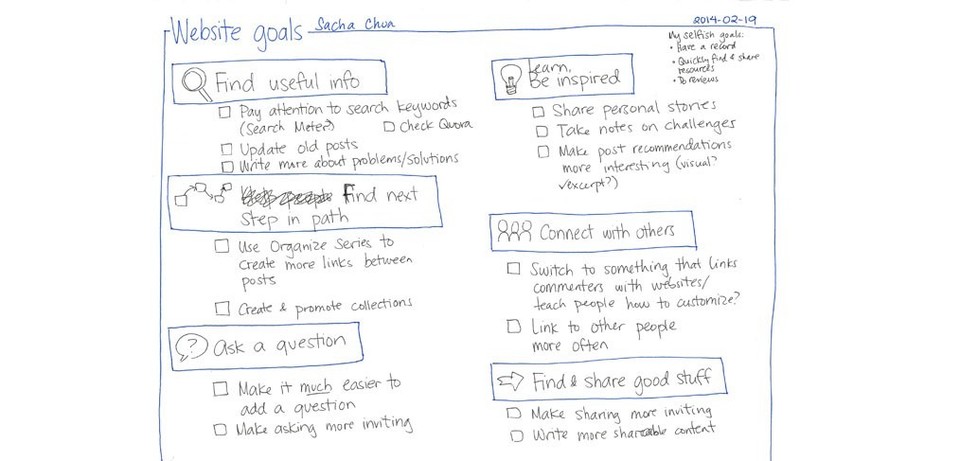 Website goals Sacha Chua
2014-02-19
My selfish goals:
• Have a record
• Quickly find & share
resources
• To reviews
Find useful info
Pay attention to search keywords
(Search Meter) Check Quora
Update old posts
Write more about problems/solutions
Find next
step in path
Use Organize Series to
create more links between
posts
Create & promote collections
? Ask a question
Make it much easier to
add a question
Make asking more inviting
Learn,
Be inspired
Share personal stories
Take notes on challenges
Make post recommendations
more interesting (visual?
/excerpt?)
Connect with others
Switch to something that links
commenters with websites/
teach people how to customize?
Link to other people
more often
Find & share good stuff
Make sharing more inviting
Write more shareable content